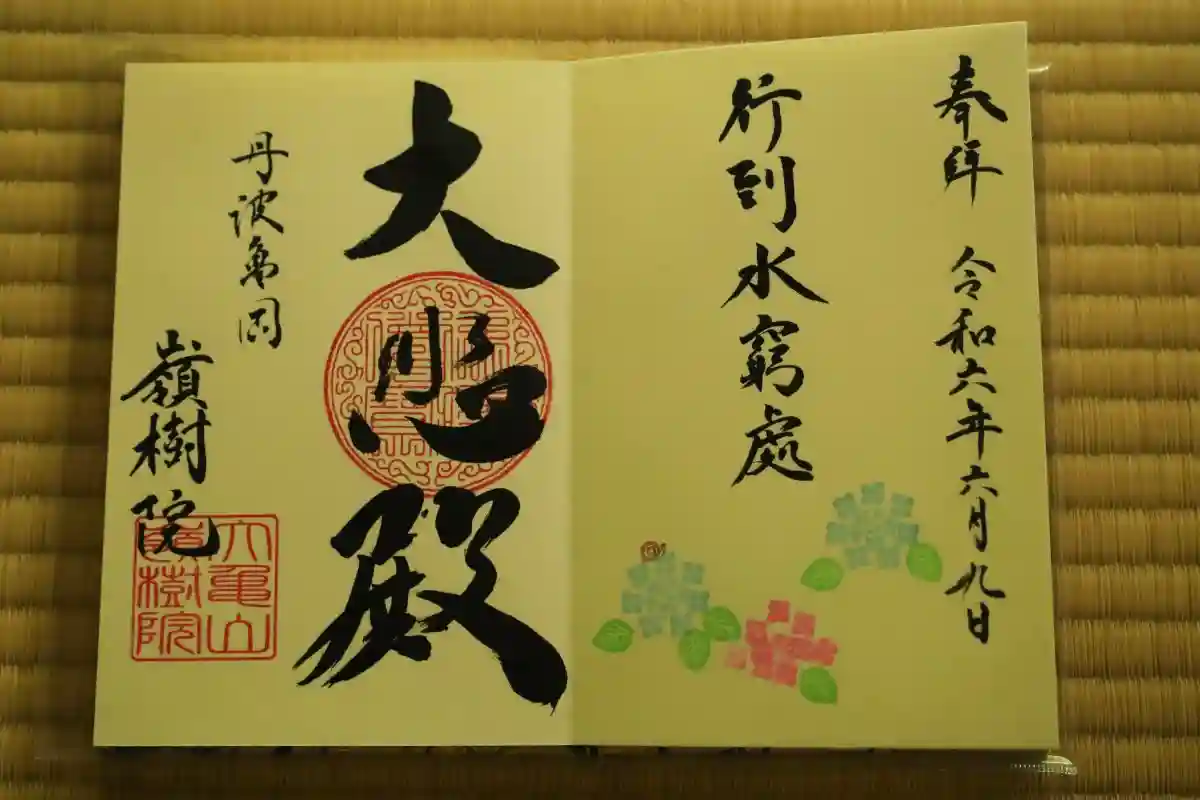 奉拝 令和六年六月九日
行到水窮處
大照殿
丹波亀岡
嶺樹院
六亀山
嶺樹院